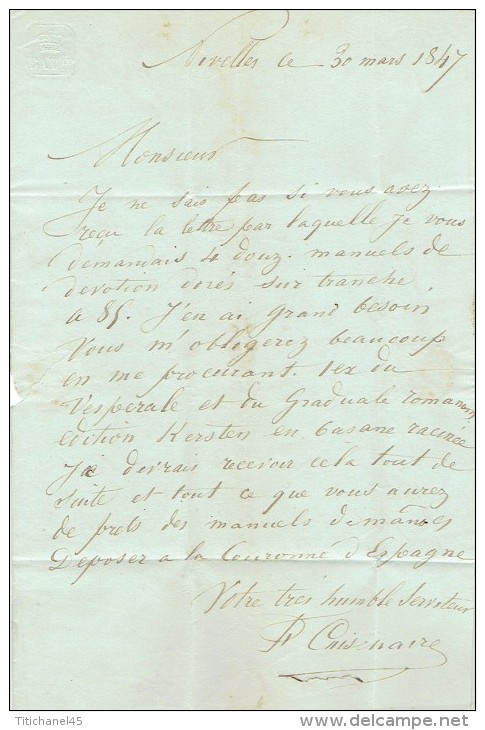 Nivelles ce 30 mars 1847
Monsieur
Je ne sais pas si vous avez
reçu la lettre par laquelle je vous
demandais 4 douz. manuels de
devotion dorés sur tranche
a 85. J'en ai grand besoin
Vous m'obligerez beaucoup
en me procurant 1 ex du
Vesperale et du Graduale romanum
edition Kersten en basane racinée
Je devrais recevoir cela tout de
suite et tout ce que vous aurez
de prets des manuels demandes
Deposer a la Couronne d'Espagne
Votre tres humble serviteur
Cuisenaire
Titichanel45
http://www.delcampe.net